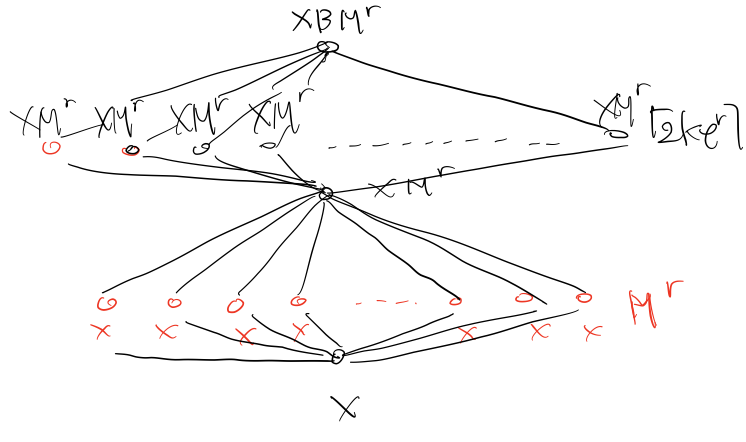 XBM^r
XM^r XM^r XM^r XM^r XM^r ⌈2ke^r⌉
XM^r
M^r
X X X X X X X
X